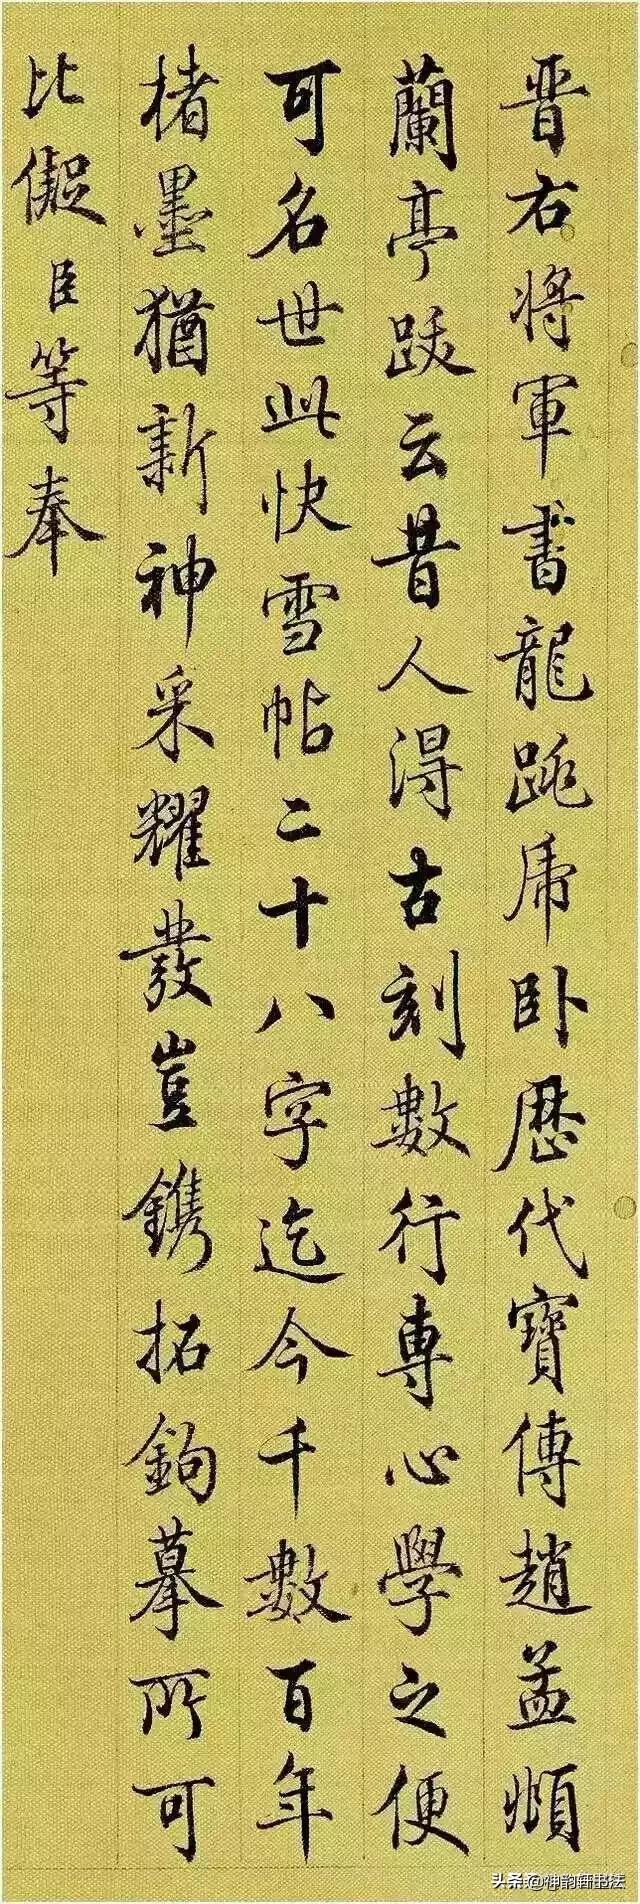 晋右将軍書龍跳虎卧歷代寶傳趙孟頫
蘭亭跋云昔人得古刻數行專心學之便
可名世此快雪帖二十八字迄今千數百年
楮墨猶新神采耀發豈鐫拓鉤摹所可
比儗臣等奉
头条@神韵轩书法